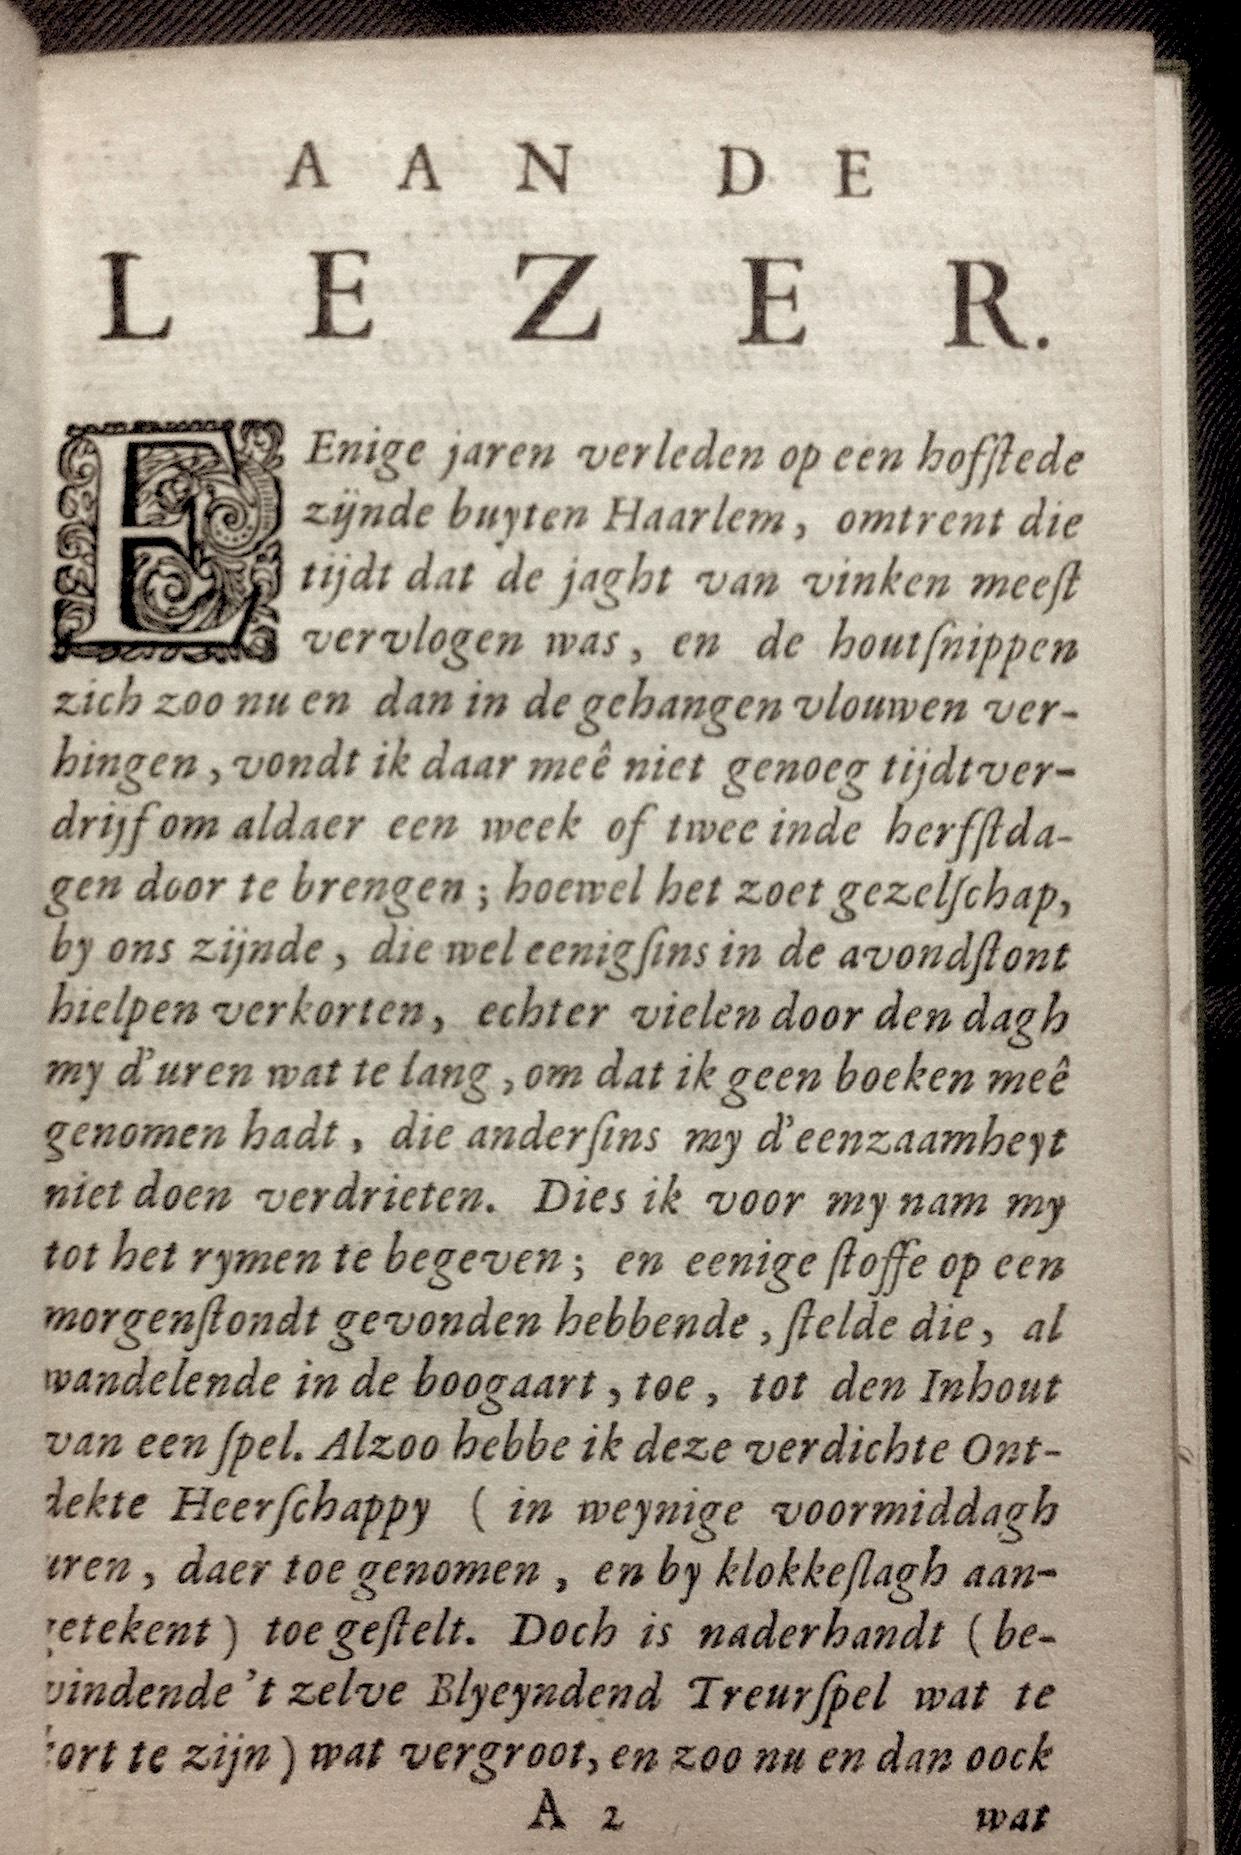 AAN DE
LEZER.
EEnige jaren verleden op een hofſtede
zijnde buyten Haarlem, omtrent die
tijdt dat de jaght van vinken meeſt
vervlogen was, en de houtſnippen
zich zoo nu en dan in de gehangen vlouwen ver-
hingen, vondt ik daar meê niet genoeg tijdtver-
drijf om aldaer een week of twee inde herfſtda-
gen door te brengen; hoewel het zoet gezelſchap,
by ons zijnde, die wel eenigſins in de avondſtont
hielpen verkorten, echter vielen door den dagh
my d'uren wat te lang, om dat ik geen boeken meê
genomen hadt, die anderſins my d'eenzaamheyt
niet doen verdrieten. Dies ik voor my nam my
tot het rymen te begeven; en eenige ſtoffe op een
morgenſtondt gevonden hebbende, ſtelde die, al
wandelende in de boogaart, toe, tot den Inhout
van een ſpel. Alzoo hebbe ik deze verdichte Ont-
dekte Heerſchappy (in weynige voormiddagh
uren, daer toe genomen, en by klokkeſlagh aan-
getekent) toe geſtelt. Doch is naderhandt (be-
vindende 't zelve Blyeyndend Treurſpel wat te
kort te zijn) wat vergroot, en zoo nu en dan oock
A 2 wat